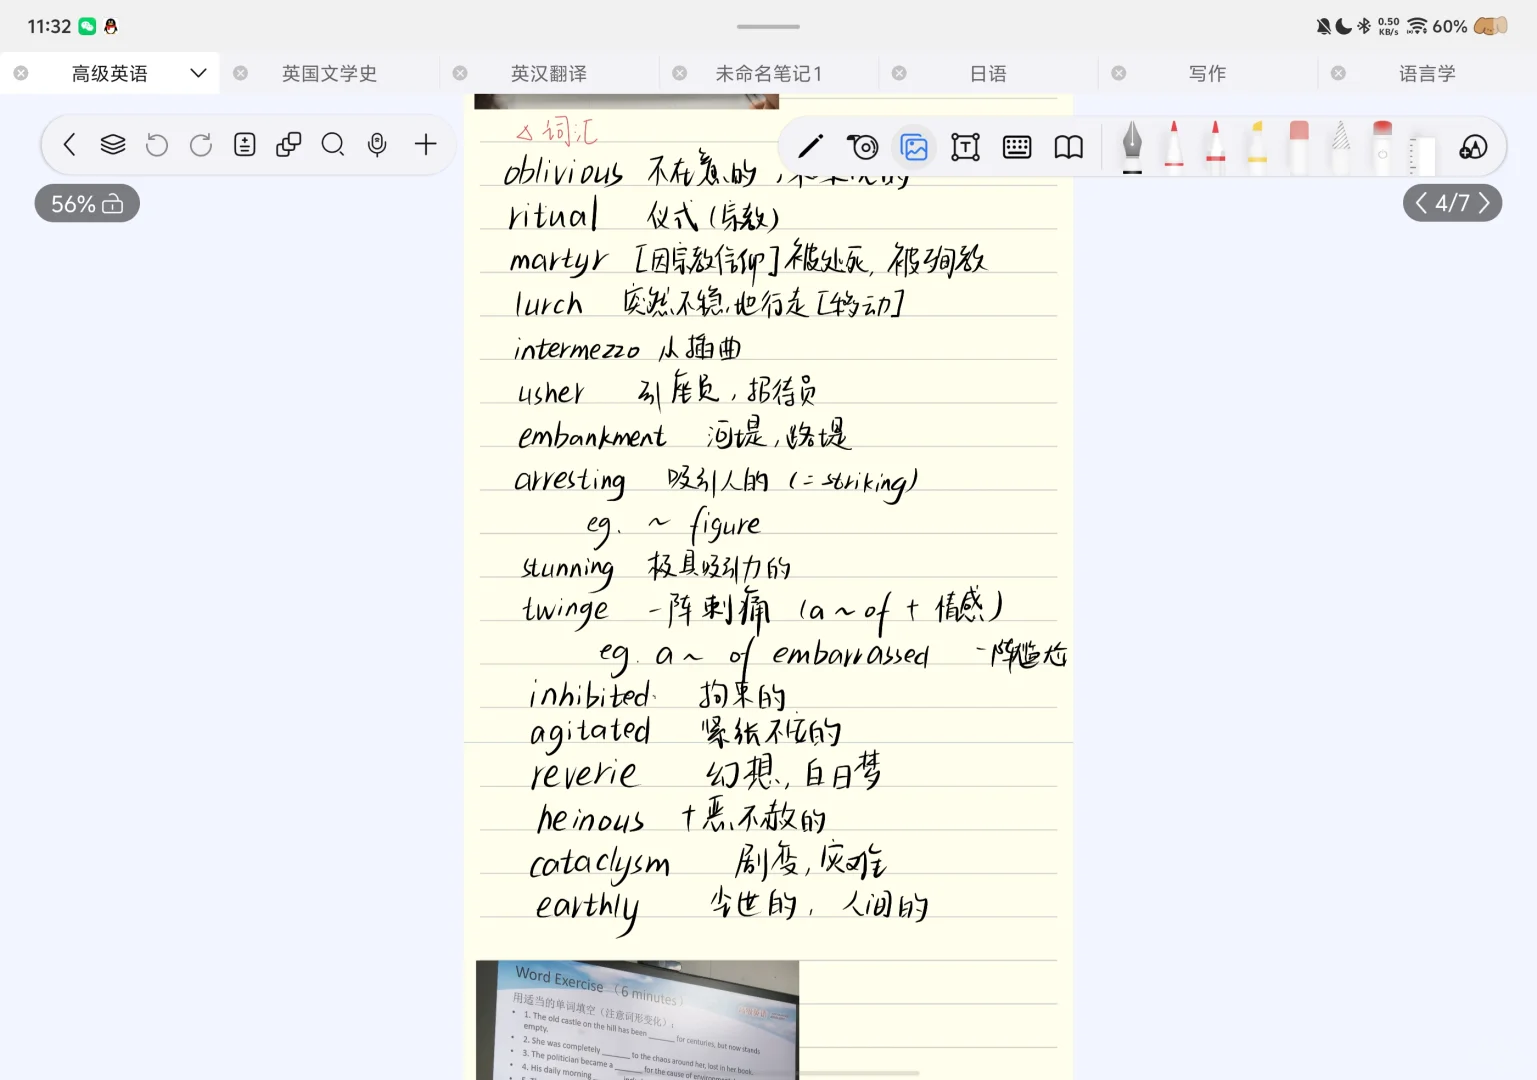 11:32 0.50 KB/s 60%
高级英语 英国文学史 英汉翻译 未命名笔记1 日语 写作 语言学
56% 4/7
△词汇
oblivious 不在意的,
ritual 仪式(宗教)
martyr [因宗教信仰]被处死, 被殉教
lurch 突然不稳地行走[移动]
intermezzo 从插曲
usher 引座员,招待员
embankment 河堤,路堤
arresting 吸引人的 (=striking)
eg. ~ figure
stunning 极具吸引力的
twinge 一阵刺痛 (a ~ of + 情感)
eg. a ~ of embarrassed 一阵尴尬
inhibited 拘束的
agitated 紧张不安的
reverie 幻想,白日梦
heinous 十恶不赦的
cataclysm 剧变,灾难
earthly 尘世的, 人间的
Word Exercise (6 minutes)
用适当的单词填空(注意词形变化):
• 1. The old castle on the hill has been ______ for centuries, but now stands
empty.
• 2. She was completely ______ to the chaos around her, lost in her book.
• 3. The politician became a ______ for the cause of
• 4. His daily morning